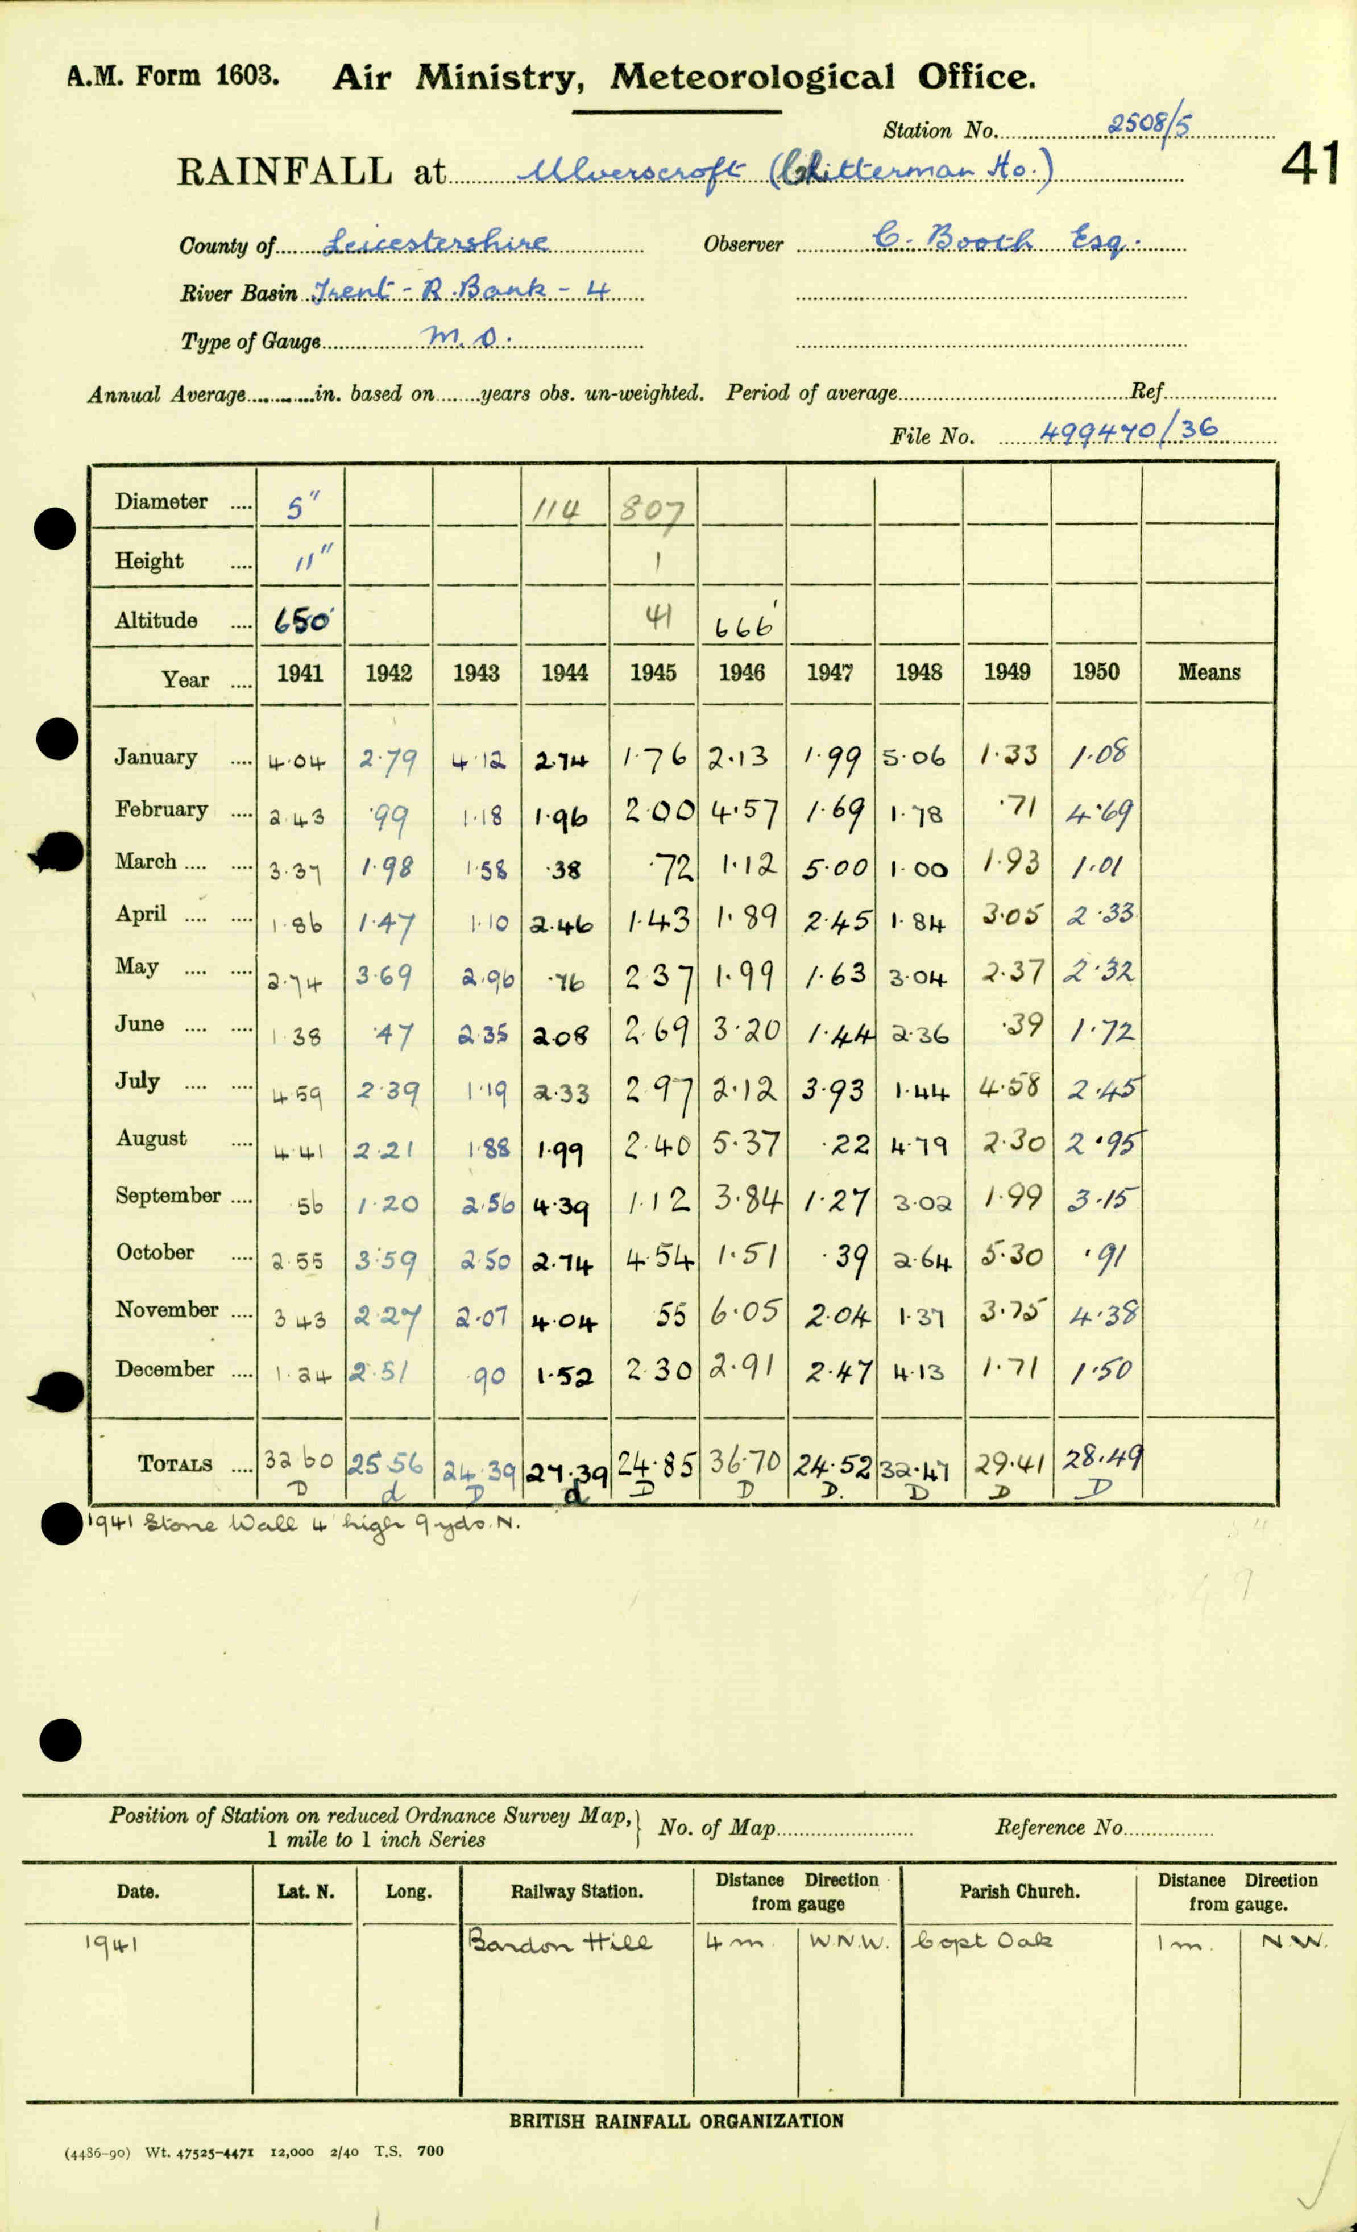 A.M. Form 1603. Air Ministry, Meteorological Office.
Station No. 2508/5
41
RAINFALL at Ulverscroft (Chitterman Ho.)
County of Leicestershire Observer C. Booth Esq.
River Basin Trent - R. Bank - 4
Type of Gauge M.O.
Annual Average in. based on years obs. un-weighted. Period of average Ref.
File No. 499470/36
Diameter .... 5" 114 807
Height .... 11" 1
Altitude .... 650' 41 666'
Year .... 1941 1942 1943 1944 1945 1946 1947 1948 1949 1950 Means
January .... 4.04 2.79 4.12 2.74 1.76 2.13 1.99 5.06 1.33 1.08
February .... 2.43 .99 1.18 1.96 2.00 4.57 1.69 1.78 .71 4.69
March .... .... 3.37 1.98 1.58 .38 .72 1.12 5.00 1.00 1.93 1.01
April .... .... 1.86 1.47 1.10 2.46 1.43 1.89 2.45 1.84 3.05 2.33
May .... .... 2.74 3.69 2.96 .76 2.37 1.99 1.63 3.04 2.37 2.32
June .... .... 1.38 .47 2.35 2.08 2.69 3.20 1.44 2.36 .39 1.72
July .... .... 4.59 2.39 1.19 2.33 2.97 2.12 3.93 1.44 4.58 2.45
August .... 4.41 2.21 1.88 1.99 2.40 5.37 .22 4.79 2.30 2.95
September .... .56 1.20 2.56 4.39 1.12 3.84 1.27 3.02 1.99 3.15
October .... 2.55 3.59 2.50 2.74 4.54 1.51 .39 2.64 5.30 .91
November .... 3 43 2.27 2.07 4.04 55 6.05 2.04 1.37 3.75 4.38
December .... 1.24 2.51 .90 1.52 2.30 2.91 2.47 4.13 1.71 1.50
TOTALS .... 32 60 25 56 24.39 27.39 24.85 36.70 24.52 32.47 29.41 28.49
D d D d D D D. D D D
1941 Stone Wall 4' high 9 yds. N.
Position of Station on reduced Ordnance Survey Map, 1 mile to 1 inch Series } No. of Map Reference No.
Date. Lat. N. Long. Railway Station. Distance Direction from gauge Parish Church. Distance Direction from gauge.
1941 Bardon Hill 4 m. W.N.W. Copt Oak 1 m. N.W.
BRITISH RAINFALL ORGANIZATION
(4486-90) Wt. 47525-4471 12,000 2/40 T.S. 700